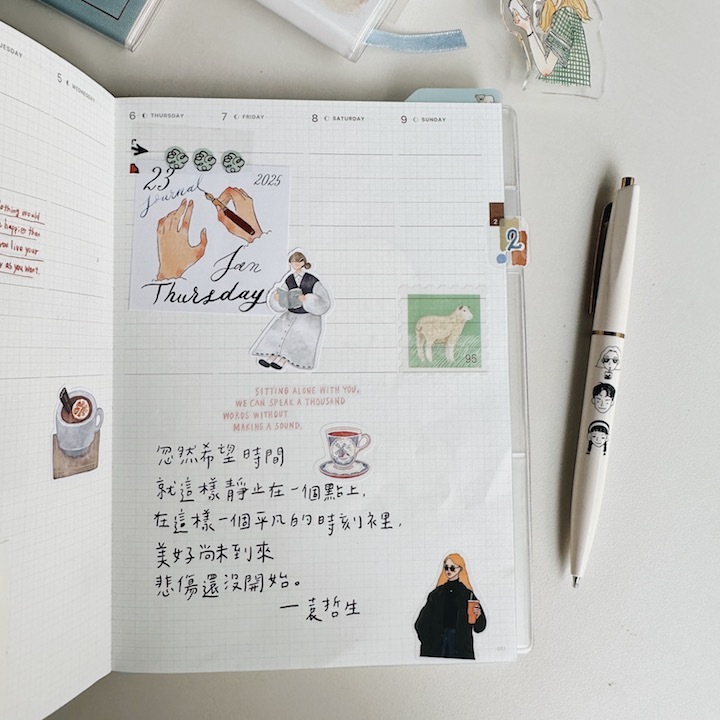 5 WEDNESDAY
6 THURSDAY
7 FRIDAY
8 SATURDAY
9 SUNDAY
23
Journal
2025
Jan
Thursday
2
2
95
SITTING ALONE WITH YOU,
WE CAN SPEAK A THOUSAND
WORDS WITHOUT
MAKING A SOUND.
忽然希望時間
就這樣靜止在一個點上,
在這樣一個平凡的時刻裡,
美好尚未到來
悲傷還沒開始。
—袁哲生